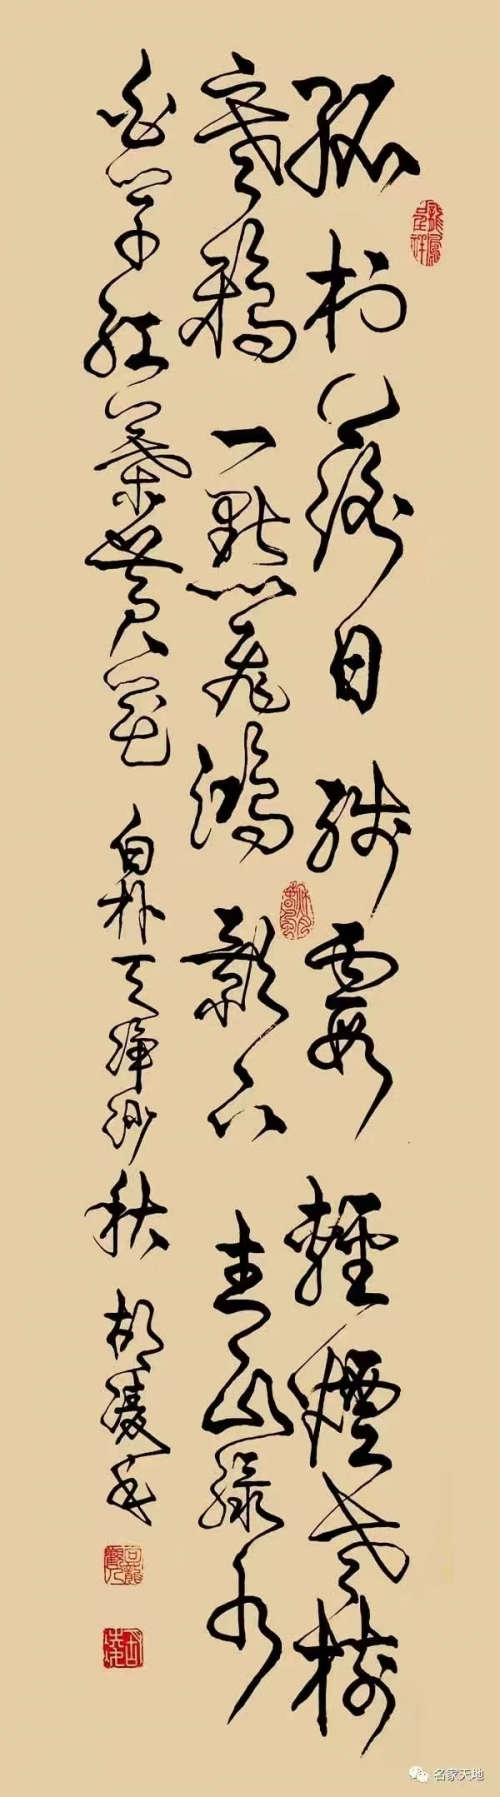 孤村落日殘霞輕煙老樹
寒鴉一點飛鴻影下青山綠水
白草紅葉黃花
白朴天淨沙秋 胡凌書
名家天地